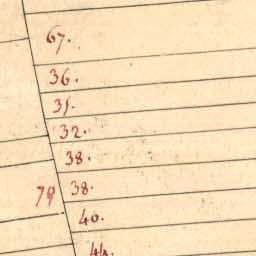 67.
36.
35.
32.
38.
79 38.
40.
44.